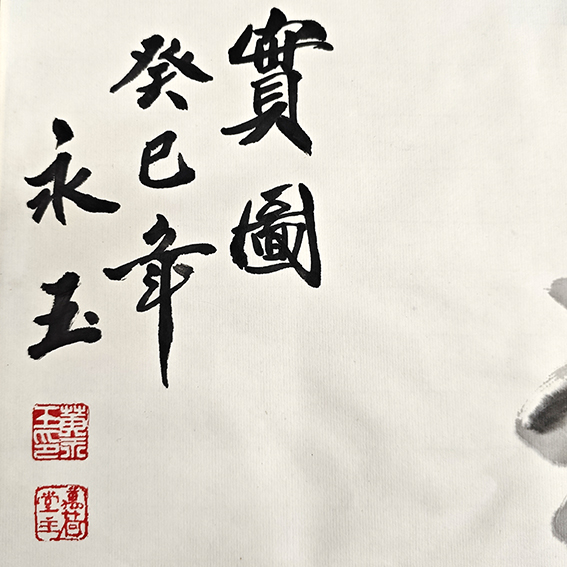 實圖
癸巳年
永玉
黃永玉印
萬荷堂主